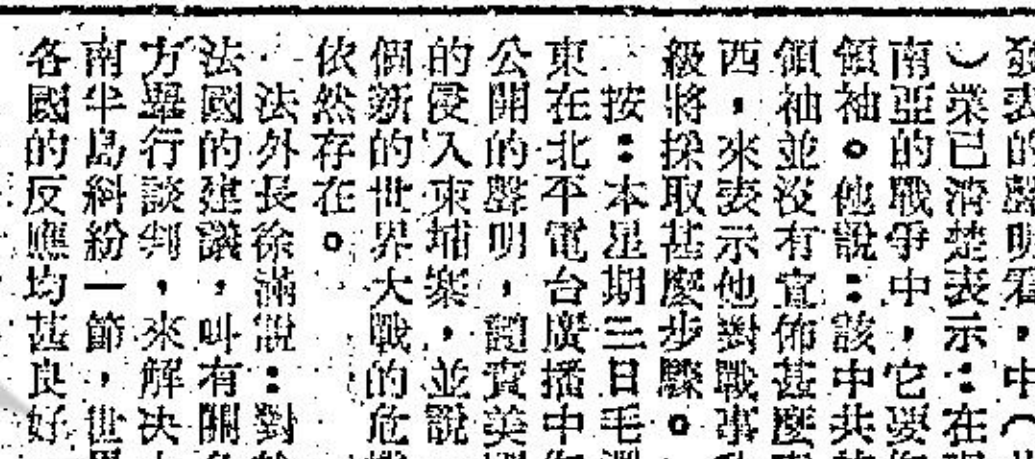 發表的聲明看，中（
）業已清楚表示：在
南亞的戰爭中，它要
領袖。他說：該中共
領袖並沒有宣佈甚麼
西，來表示他對戰事
級將採取甚麼步驟。
按：本星期三日毛
東在北平電台廣播中
公開的聲明，譴責美
的侵入柬埔寨，並說
個新的世界大戰的危
依然存在。
法外長徐滿說：對
法國的建議，叫有關
方舉行談判，來解决
南半島糾紛一節，世
各國的反應均甚良好